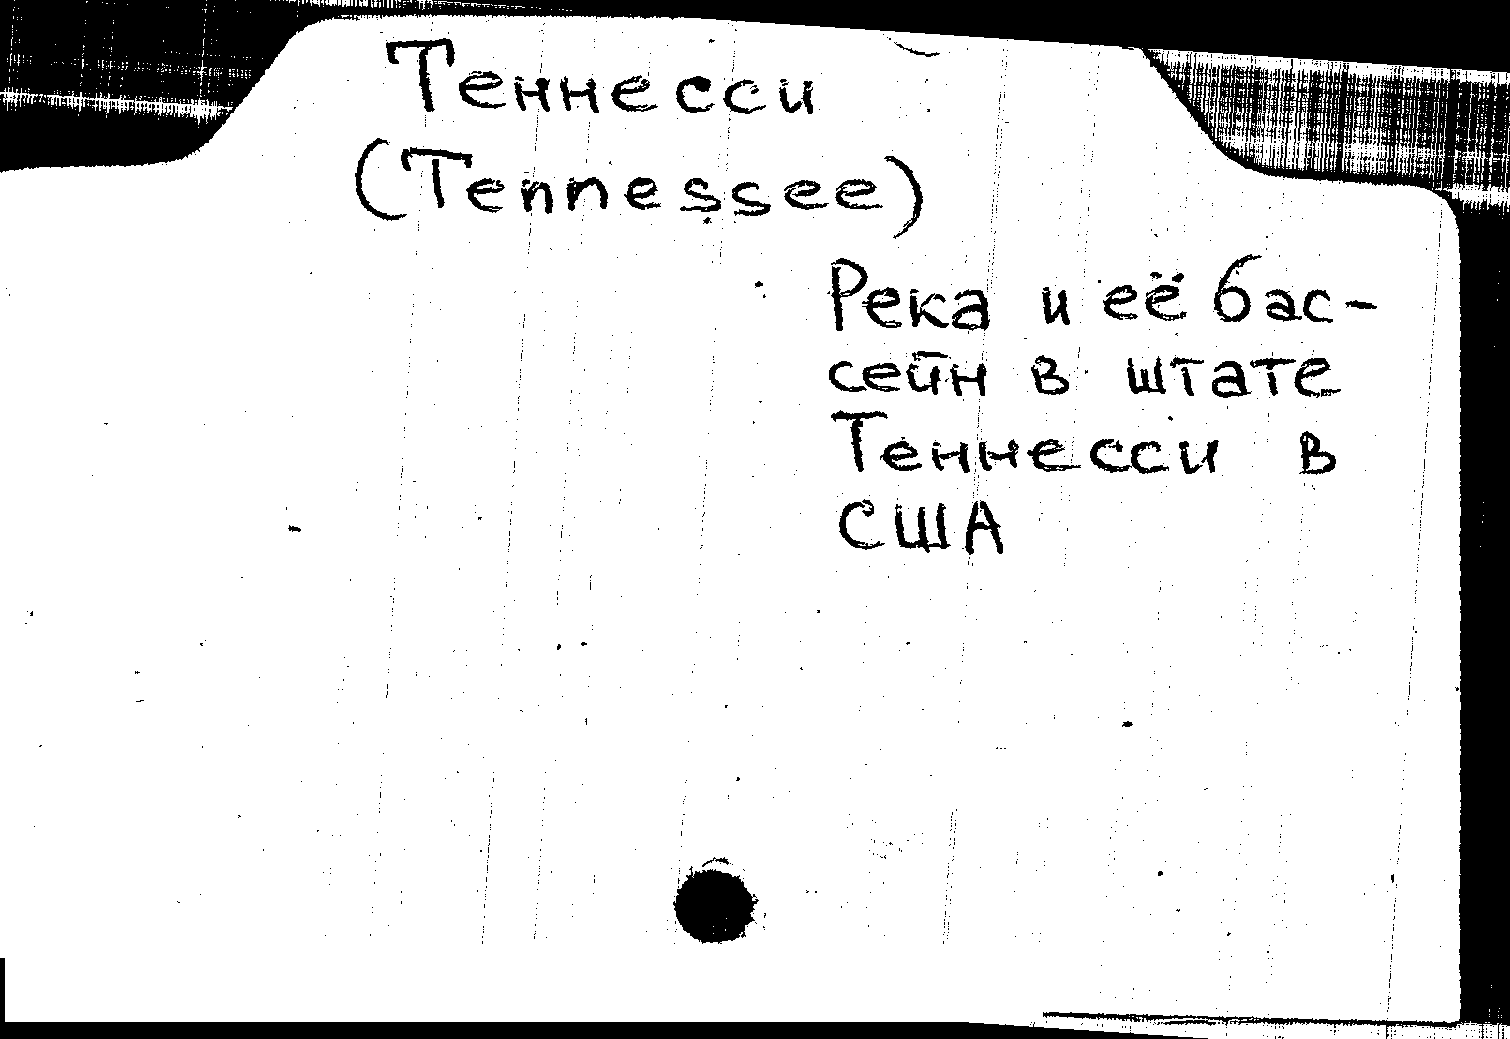 Теннесси
(Tennessee)
Река и её бас-
сейн в штате
Теннесси в
США